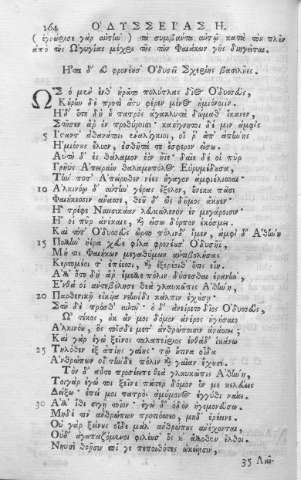 264 ὈΔΥΣΣΕΙΑΣ Η.
( γὰρ αὐτὸν ) τὰ συμβάντα αὐτῷ κατὰ τὸν πλοῦν
ἀπὸ τῆς Ὠγυγίας μέχρι τῆς τῶν Φαιάκων γῆς διηγεῖται.
Ὀδυσῆ Σχερίης βασιλῆες.
Ὣς ὁ μὲν ἔνθ' ἠρᾶτο πολύτλας δῖος Ὀδυσσεύς,
Κούρην δὲ προτὶ ἄστυ φέρεν μένος ἡμιόνοιιν.
Ἡ δ' ὅτε δὴ οὗ πατρὸς ἀγακλυτὰ δώμαθ' ἵκανε,
Στῆσεν ἄρ' ἐν προθύροισι· κασίγνητοι δέ μιν ἀμφὶς
5 Ἵσταντ' ἀθανάτοις ἐναλίγκιοι, οἵ ῥ' ὑπ' ἀπήνης
Ἡμιόνους ἔλυον, ἐσθῆτά τε ἔσφερον εἴσω.
Αὐτὴ δ' ἐς θάλαμον ἑὸν ἤϊε· δαῖε δέ οἱ πῦρ
Γρηῢς Ἀπειραίη θαλαμηπόλος Εὐρυμέδουσα,
Τήν ποτ' Ἀπείρηθεν νέες ἤγαγον ἀμφιέλισσαι·
10 Ἀλκινόῳ δ' αὐτὴν γέρας ἔξελον, οὕνεκα πᾶσι
Φαιήκεσσιν ἄνασσε, θεοῦ δ' ὣς δῆμος ἄκουεν·
Ἣ τρέφε Ναυσικάαν λευκώλενον ἐν μεγάροισιν·
Ἥ οἱ πῦρ ἀνέκαιε, καὶ εἴσω δόρπον ἐκόσμει.
Καὶ τότ' Ὀδυσσεὺς ὦρτο πόλινδ' ἴμεν, ἀμφὶ δ' Ἀθήνη
15 Πολλὴν ἠέρα χεῦε φίλα φρονέουσ' Ὀδυσῆϊ,
Μή τις Φαιήκων μεγαθύμων ἀντιβολήσας
Κερτομέοι τ' ἐπέεσσι, καὶ ἐξερέοιθ' ὅτις εἴη.
Ἀλλ' ὅτε δὴ ἄρ' ἔμελλε πόλιν δύσεσθαι ἐραννὴν,
Ἔνθα οἱ ἀντεβόλησε θεὰ γλαυκῶπις Ἀθήνη,
20 Παρθενικῇ εἰκυῖα νεήνιδι κάλπιν ἐχούσῃ·
Στῆ δὲ πρόσθ' αὐτοῦ· ὁ δ' ἀνείρετο δῖος Ὀδυσσεύς,
Ὦ τέκος, οὐκ ἄν μοι δόμον ἀνέρος ἡγήσαιο
Ἀλκινόου, ὃς τοῖσδε μετ' ἀνθρώποισιν ἀνάσσει;
Καὶ γὰρ ἐγὼ ξεῖνος ταλαπείριος ἐνθάδ' ἱκάνω
25 Τηλόθεν ἐξ ἀπίης γαίης· τῷ οὔτινα οἶδα
Ἀνθρώπων οἳ τήνδε πόλιν καὶ γαῖαν ἔχουσι.
Τὸν δ' αὖτε προσέειπε θεὰ γλαυκῶπις Ἀθήνη,
Τοιγὰρ ἐγώ τοι ξεῖνε πάτερ δόμον ὅν με κελεύεις
Δείξω· ἐπεί μοι πατρὸς ἀμύμονος ἐγγύθι ναίει.
30 Ἀλλ' ἴθι σιγῇ τοῖον· ἐγὼ δ' ὁδὸν ἡγεμονεύσω.
Μηδέ τιν' ἀνθρώπων προτιόσσεο, μηδ' ἐρέεινε.
Οὐ γὰρ ξείνους οἵδε μάλ' ἀνθρώπους ἀνέχονται,
Οὐδ' ἀγαπαζόμενοι φιλέουσ' ὅς κ' ἄλλοθεν ἔλθοι.
Νηυσὶ θοῇσιν τοί γε πεποιθότες ὠκείῃσιν,
35 Λαῖ-